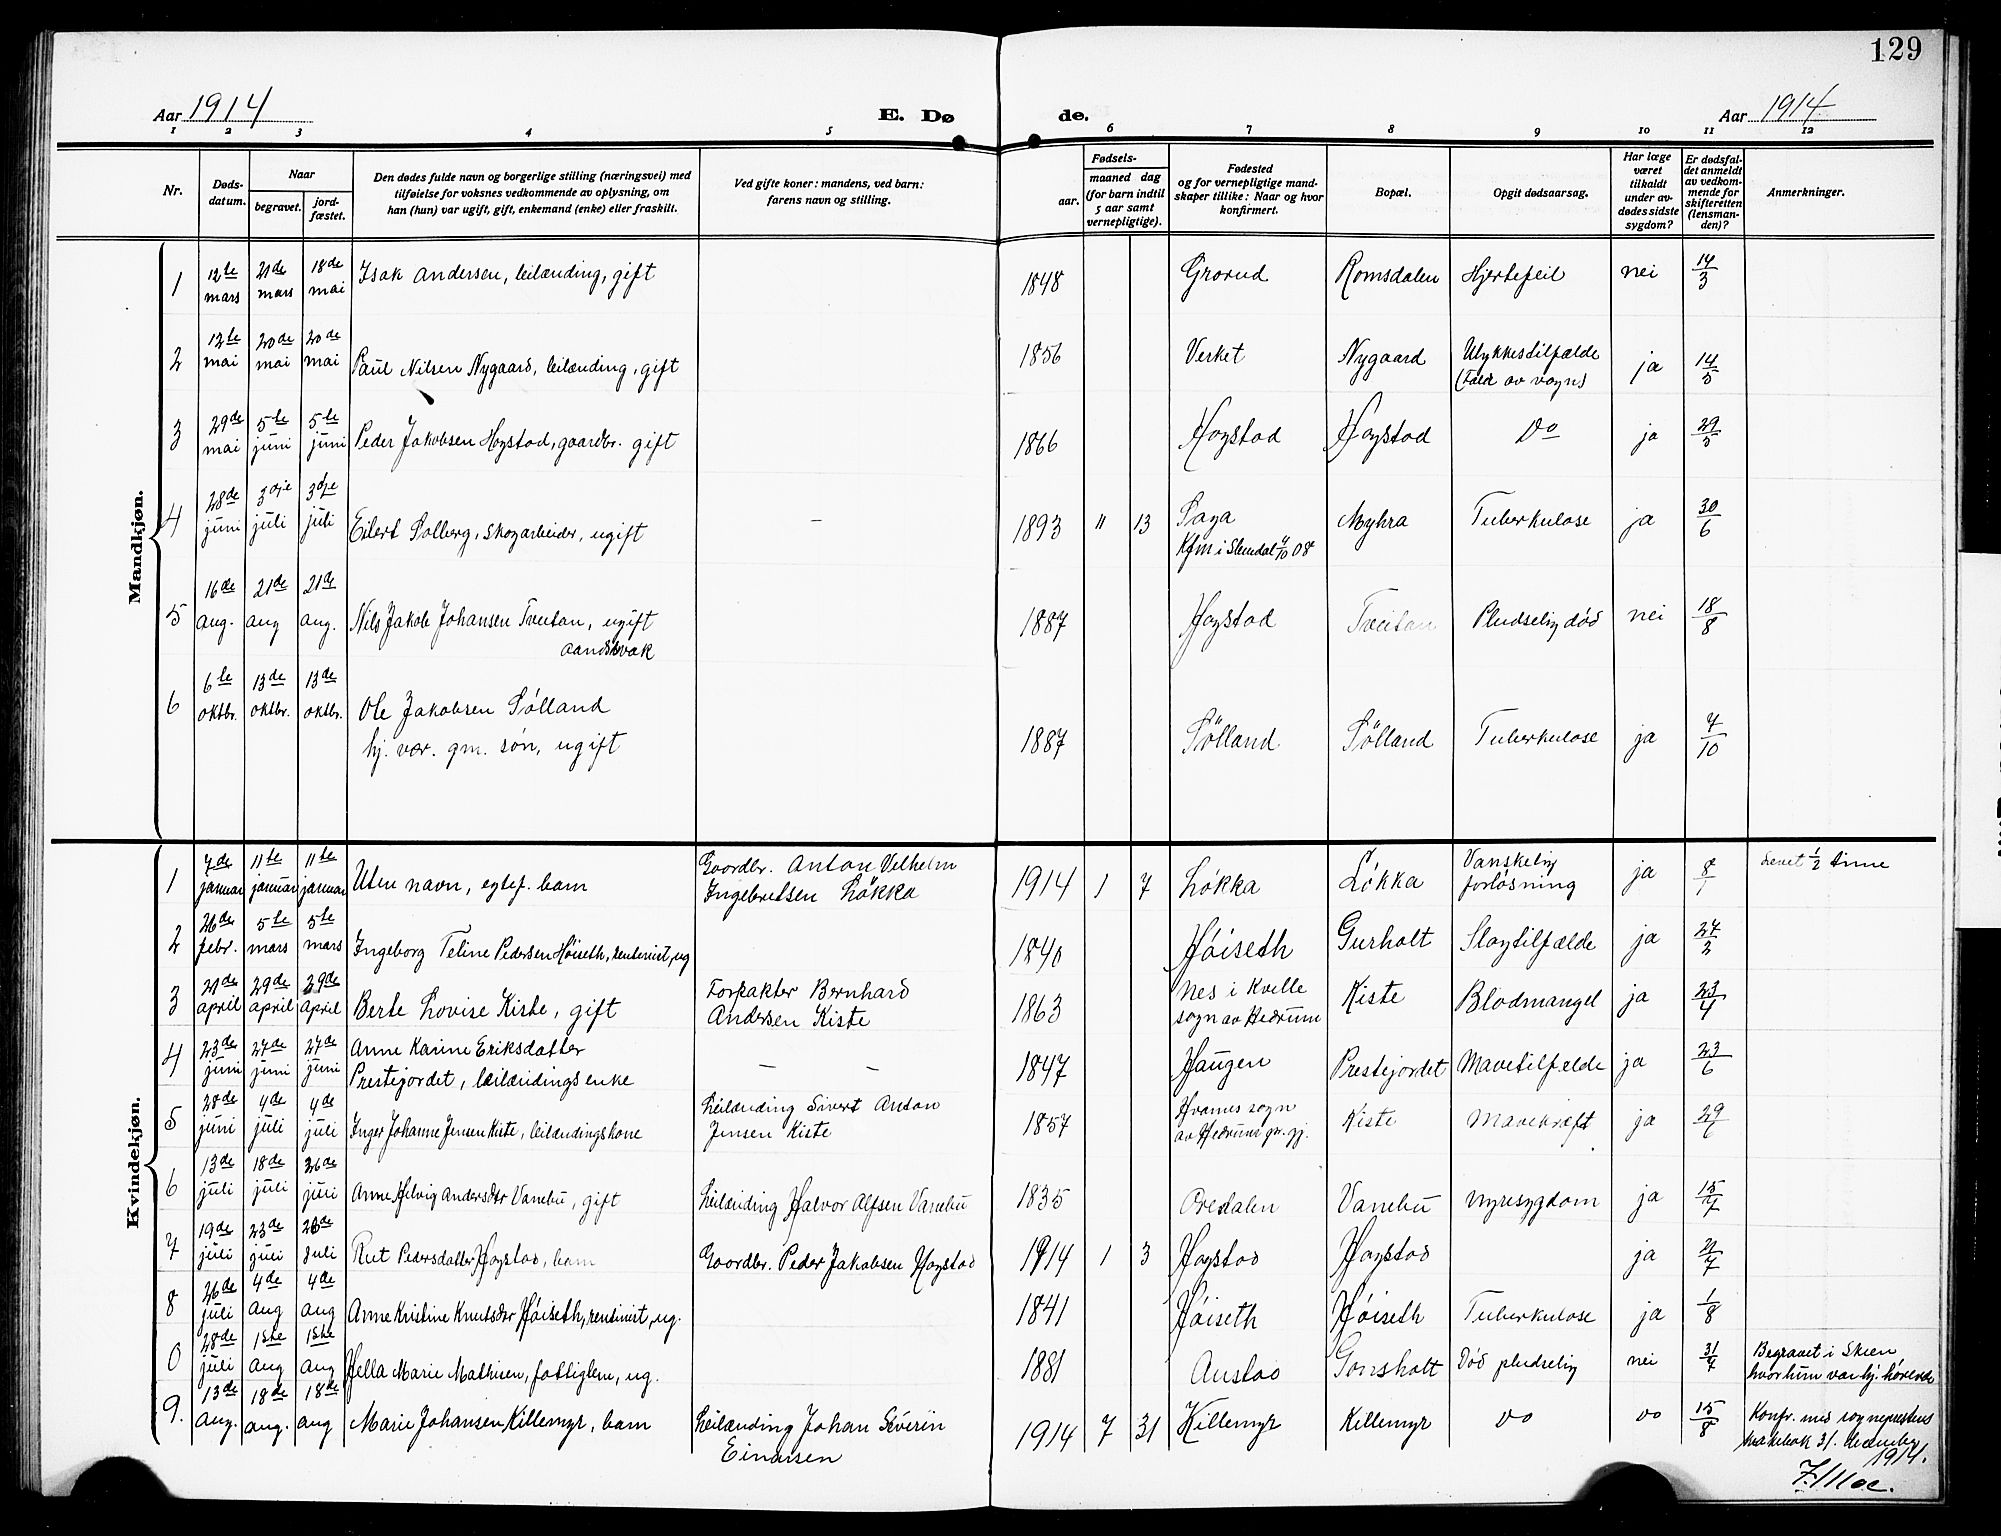 129
Aar 1914
E. Dø
de.
Aar 1914
1 2 3 4 5 6 7 8 9 10 11 12
Nr.
Døds-
datum.
Naar
begravet.
jord-
fæstet.
Den dødes fulde navn og borgerlige stilling (næringsvei) med
tilføielse for voksnes vedkommende av oplysning, om
han (hun) var ugift, gift, enkemand (enke) eller fraskilt.
Ved gifte koner: mandens, ved barn:
farens navn og stilling.
Fødsels-
aar.
maaned dag
(for barn indtil
5 aar samt
vernepligtige).
Fødested
og for vernepligtige mand-
skaper tillike: Naar og hvor
konfirmert.
Bopæl.
Opgit dødsaarsag.
Har læge
været
tilkaldt
under av-
dødes sidste
sygdom?
Er dødsfal-
det anmeldt
av vedkom-
mende for
skifteretten
(lensman-
den)?
Anmerkninger.
Mandkjøn.
1 12te mars 21de mars 18de mai Isak Andersen, leilænding, gift 1848 Grorud Romsdalen Hjertefeil nei 14/3
2 12te mai 20de mai 20de mai Paul Nilsen Nygaard, leilænding, gift 1856 Verket Nygaard Ulykkestilfælde (Fald av vogn) ja 14/5
3 29de mai 5te juni 5te juni Peder Jakobsen Hogstad, gaardbr. gift 1866 Hogstad Hogstad Do ja 29/5
4 28de juni 3dje juli 3dje juli Eilert Solberg, skogarbeider, ugift – 1893 11 13 Saga Kfm i Slemdal 4/10 08 Myhra Tuberkulose ja 30/6
5 16de aug. 21de aug 21de aug. Nils Jakob Johansen Tveitan, ugift aandsvak 1887 Hogstad Tveitan Pludselig død nei 18/8
6 6te oktbr. 13de oktbr. 13de oktbr. Ole Jakobsen Sølland
hj. vær. gm. søn, ugift 1887 Sølland Sølland Tuberkulose ja 7/10
Kvindekjøn.
1 7de januar 11te januar 11te januar Uten navn, egtef. barn Gaardbr. Anton Vilhelm
Ingebretsen Løkka 1914 1 7 Løkka Løkka Vanskelig forløsning ja 8/1 Levet 1/2 time
2 26de febr. 5te mars 5te mars Ingeborg Teline Pedersen Høiseth, rentenist, ug 1840 Høiseth Gurholt Slagtilfælde ja 27/2
3 21de april 29de april 29de april Berte Lovise Kiste, gift Forpakter Bernhard
Andersen Kiste 1863 Nes i Kvelle
sogn av Hedrum Kiste Blodmangel ja 23/4
4 23de juni 27de juni 27de juni Anne Karine Eriksdatter
Prestejordet, leilændings enke – – 1847 Haugen Prestejordet Mavetilfælde ja 23/6
5 28de juni 4de juli 4de juli Inger Johanne Jensen Kiste, leilændingskone Leilænding Sivert Anton
Jensen Kiste 1857 Hvarnes sogn
av Hedrum pr. gj. Kiste Mavekræft ja 29/6
6 13de juli 18de juli 26de juli Anne Helvig Andersdtr Vanebu, gift Leilænding Halvor Alfsen Vanebu 1835 Oredalen Vanebu Nyresygdom ja 15/7
7 19de juli 23de juli 23de juli Rut Pedersdatter Hogstad, barn Gaardbr. Peder Jakobsen Hogstad 1914 1 3 Hogstad Hogstad ja 21/7
8 26de juli 4de aug 4de aug Anne Kristine Knutsdtr Høiseth, rentenist, ug. 1841 Høiseth Høiseth Tuberkulose ja 1/8
0 28de juli 1ste aug 1ste aug Hella Marie Mathisen, fattiglem, ug. 1881 Austad Gonsholt Død pludselig nei 31/7 Begravet i Skien
hvor hun var hj. hørende
9. 13de aug. 18de aug. 18de aug Marie Johansen Killemyr, barn Leilænding Johan Severin
Einarsen 1914 7 31 Killemyr Killemyr do do 15/8 Konfr. med sogneprestens
kirkebok 31. december
1914.
F. Moe.